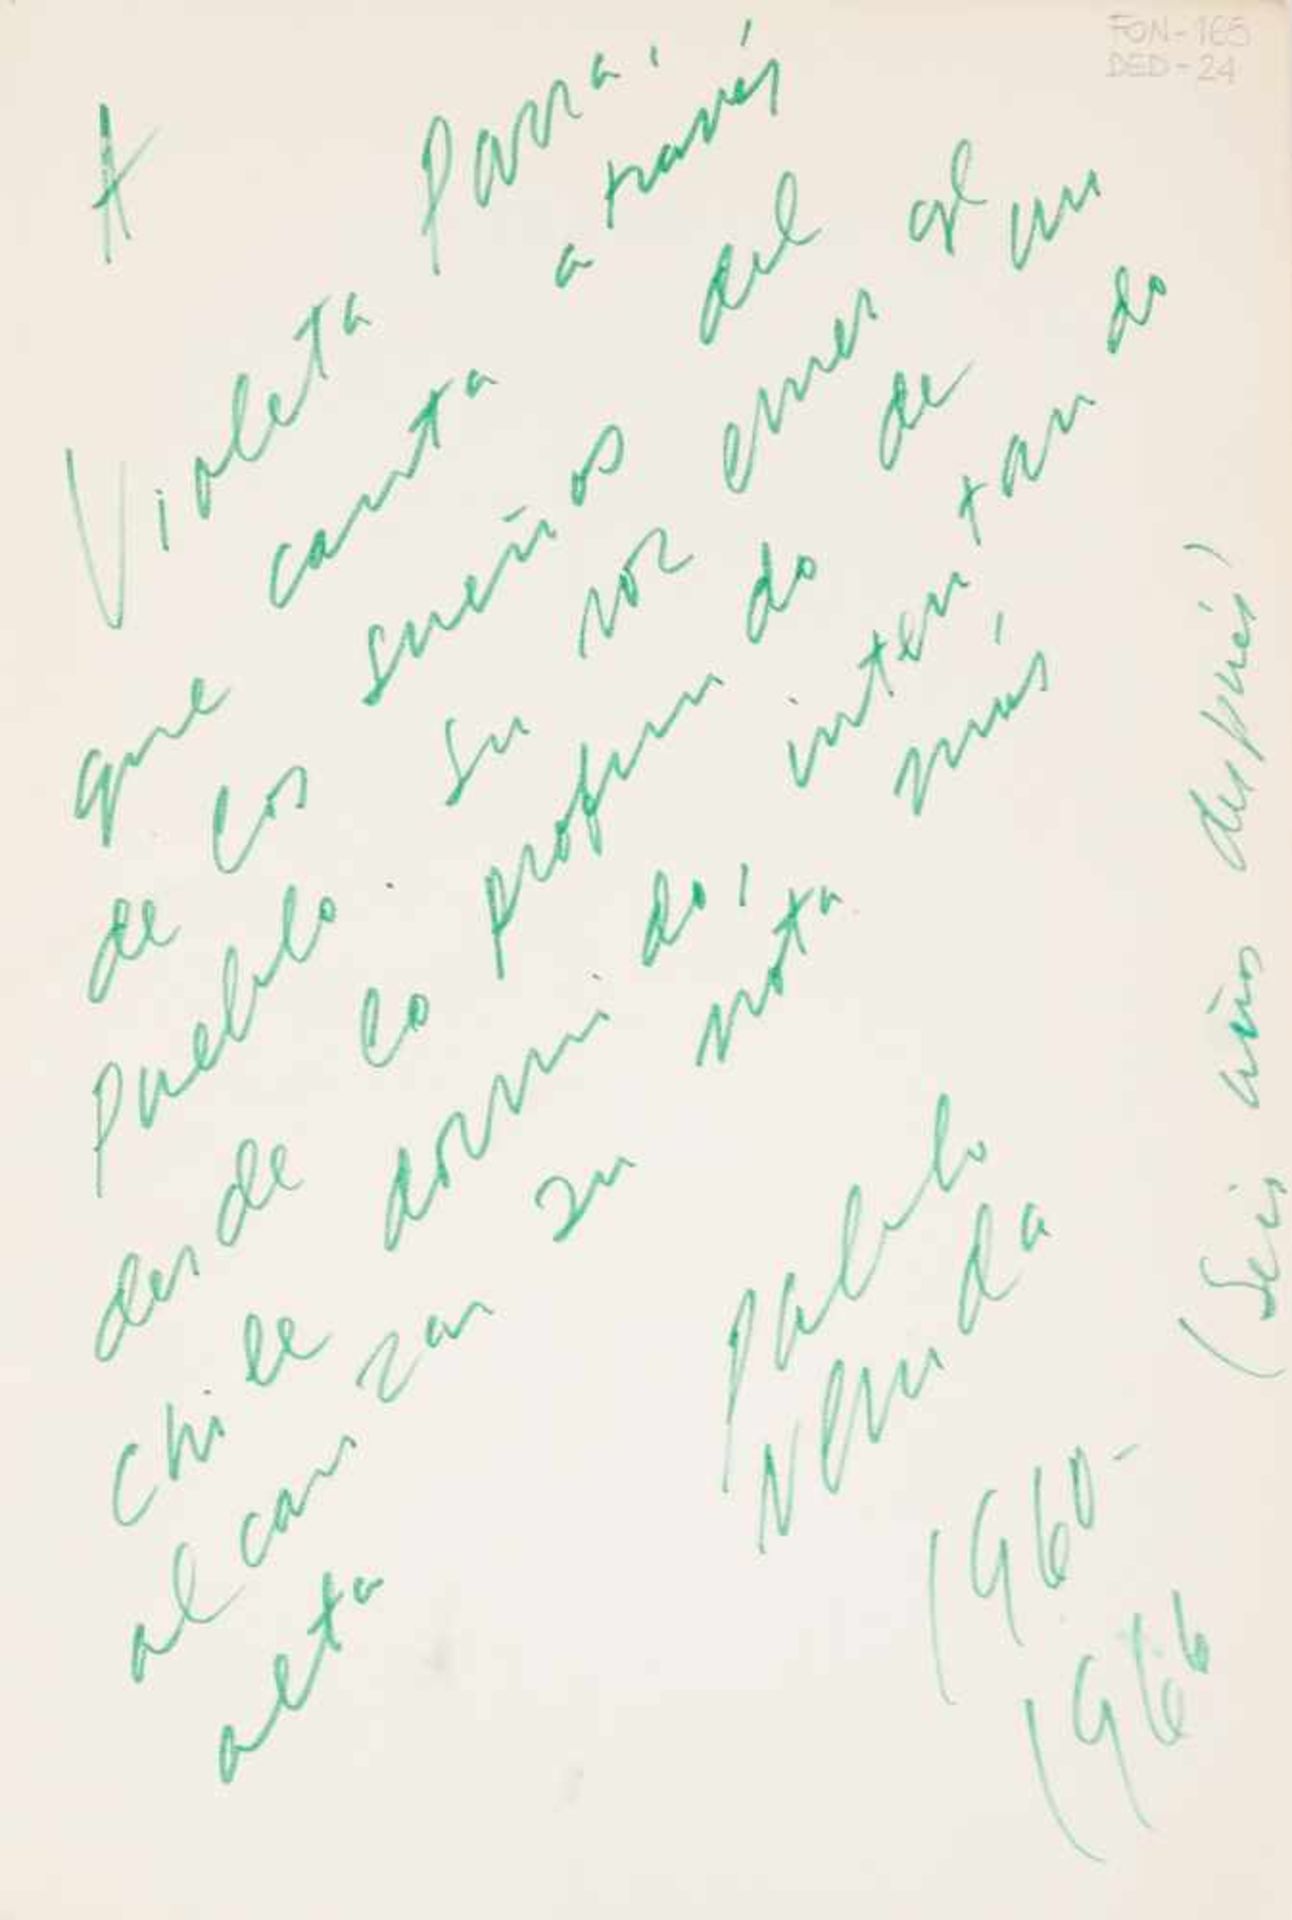 A
Violeta Parra,
que canta a través
de los sueños del
pueblo. su voz emerge
desde lo profundo de un
Chile dormido, intentando
alcanzar su nota más
alta
Pablo
Neruda
1960-
1966
(Seis años después)
FON-165
DED-24